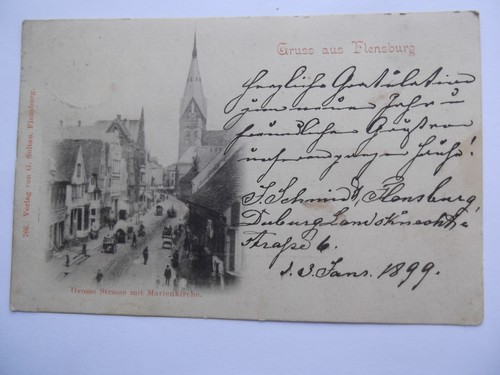 Gruss aus Flensburg
herzliche Gratulation
zum neuen Jahr u
freundlichen Grüßen von
unserm ganzen Hause!
J. Schmidt, Flensburg,
Duburg Landsknecht-
straße 6.
d. 3. Jan. 1899.
Grosse Strasse mit Marienkirche.
786. Verlag von G. Soltau, Flensburg.